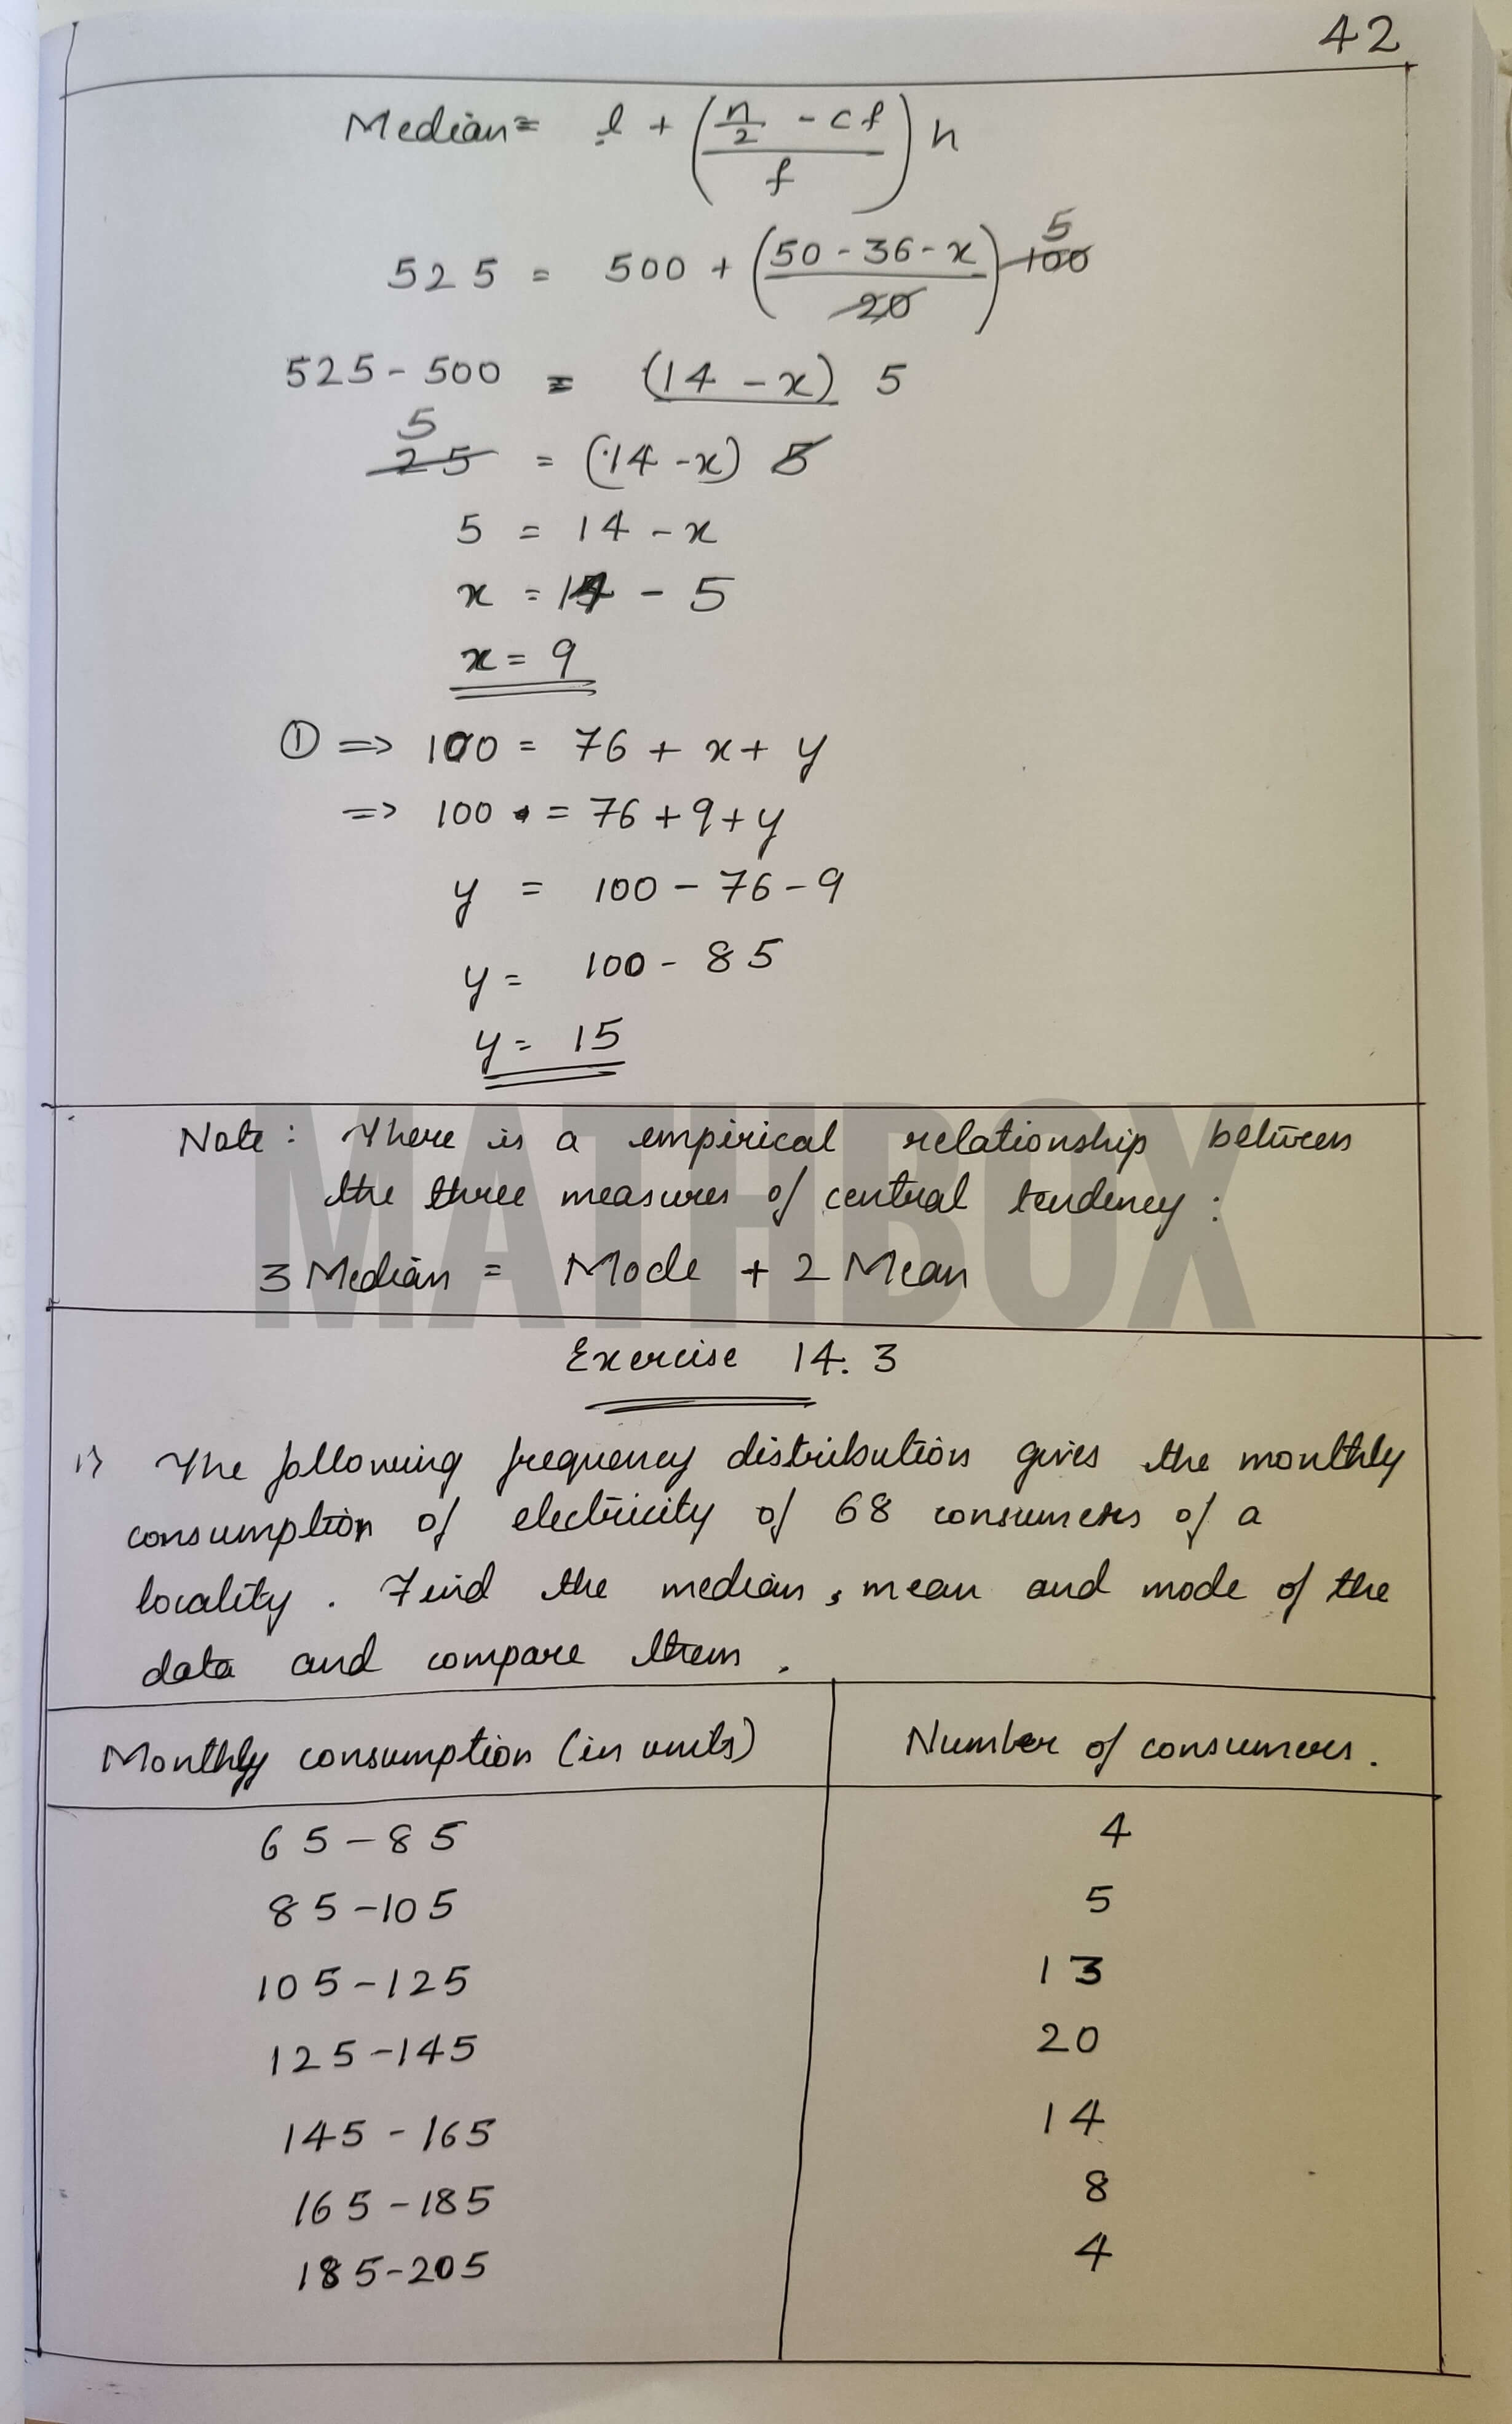 42
Median = l + ((n/2 - cf)/f) h
525 = 500 + ((50 - 36 - x)/20) 100 5
525 - 500 = (14 - x) 5
5
25 = (14 - x) 5
5 = 14 - x
x = 14 - 5
x = 9
① => 100 = 76 + x + y
=> 100 = 76 + 9 + y
y = 100 - 76 - 9
y = 100 - 85
y = 15
MATHBOX
Note: There is a empirical relationship between
the three measures of central tendency:
3 Median = Mode + 2 Mean
Exercise 14.3
1) The following frequency distribution gives the monthly
consumption of electricity of 68 consumers of a
locality. Find the median, mean and mode of the
data and compare them.
Monthly consumption (in units) Number of consumers.
65-85 4
85-105 5
105-125 13
125-145 20
145-165 14
165-185 8
185-205 4